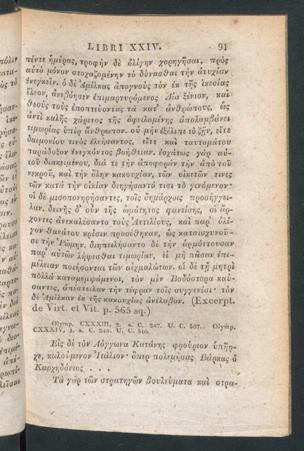 LIBRI XXIV. 91
πέντε ἡμέρας, τροφὴν δὲ ὀλίγην χορηγῆσαι, πρὸς
αὐτὸ μόνον στοχαζομένην τὸ δύνασθαι τὴν ἀτυχίαν
ἐνεγκεῖν. ὁ δὲ Ἀμίλκας ἀπογνοὺς τὸν ἐκ τῆς ἱκεσίας
ἔλεον, ἀνεβόησεν ἐπιμαρτυρόμενος Δία ξένιον, καὶ
θεοὺς τοὺς ἐποπτεύοντας τὰ κατ' ἀνθρώπους, ὡς
ἀντὶ καλῆς χάριτος τῆς ὀφειλομένης ἀπολαμβάνει
τιμωρίας ὑπὲρ ἄνθρωπον. οὐ μὴν ἐξέλιπε τὸ ζῆν, εἴτε
δαιμονίου τινὸς ἐλεήσαντος, εἴτε καὶ ταυτομάτου
παράδοξον ἐνεγκόντος βοήθειαν. ἐσχάτως γὰρ αὐ-
τοῦ διακειμένου, διά τε τὴν ἀποφορὰν τὴν ἀπὸ τοῦ
νεκροῦ, καὶ τὴν ὅλην κακουχίαν, τῶν οἰκετῶν τινες
τῶν κατὰ τὴν οἰκίαν διηγήσαντό τισι τὸ γενόμενον·
οἱ δὲ μισοπονηρήσαντες, τοῖς δημάρχοις προσήγγει-
λαν. δεινῆς δ' οὖν τῆς ὠμότητος φανείσης, οἱ ἄρ-
χοντες ἀνεκαλέσαντο τοὺς Ἀτιλίους, καὶ παρ' ὀλί-
γον θανάτου κρίσιν προσέθηκαν, ὡς καταισχύνου-
σι τὴν Ῥώμην, διηπειλήσαντο δὲ τὴν ἁρμόττουσαν
παρ' αὐτῶν λήψεσθαι τιμωρίαν, εἰ μὴ πᾶσαν ἐπι-
μέλειαν ποιήσονται τῶν αἰχμαλώτων. οἱ δὲ τῇ μητρὶ
πολλὰ καταμεμψάμενοι, τὸν μὲν Βοδόστορα καύ-
σαντες, ἀπέστειλαν τὴν τέφραν τοῖς συγγενέσι· τὸν
δὲ Ἀμίλκαν ἐκ τῆς κακουχίας ἀνέλαβον. (Excerpt.
de Virt. et Vit. p. 565 sq.)
Olymp. CXXXIII, 2. a. C. 247. U. C. 507. Olymp.
CXXXIV, 1.
Εἰς δὲ τὸν Λόγγωνα Κατάνης φρούριον ὑπῆρ-
χε, καλούμενον Ἰτάλιον· ὅπερ πολεμήσας Βάρκας ὁ
Καρχηδόνιος . . .
Τὰ γὰρ τῶν στρατηγῶν βουλεύματα καὶ στρα-